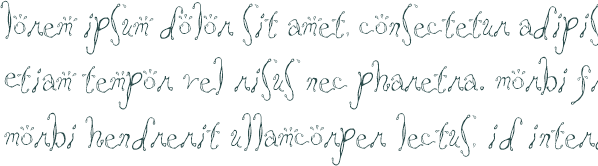 lorem ipsum dolor sit amet, consectetur adipis
etiam tempor vel risus nec pharetra. morbi
morbi hendrerit ullamcorper lectus, id inter